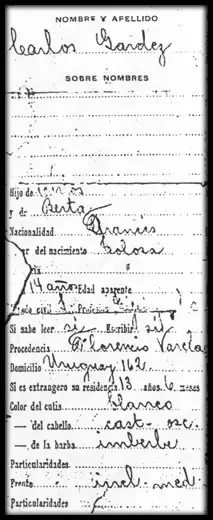 NOMBRE Y APELLIDO
Carlos Gardez
SOBRE NOMBRES
Hijo de
y de Berta
Nacionalidad Francés
ar del nacimiento Tolosa
14 años Edad aparente
Si sabe leer si Escribir si
Procedencia Florencio Varela
Domicilio Uruguay 162
Si es extrangero su residencia 13 años 6 meses
Color del cutis blanco
— del cabello cast- osc-
— de la barba imberbe
Particularidades
Frente incl- med-
Particularidades